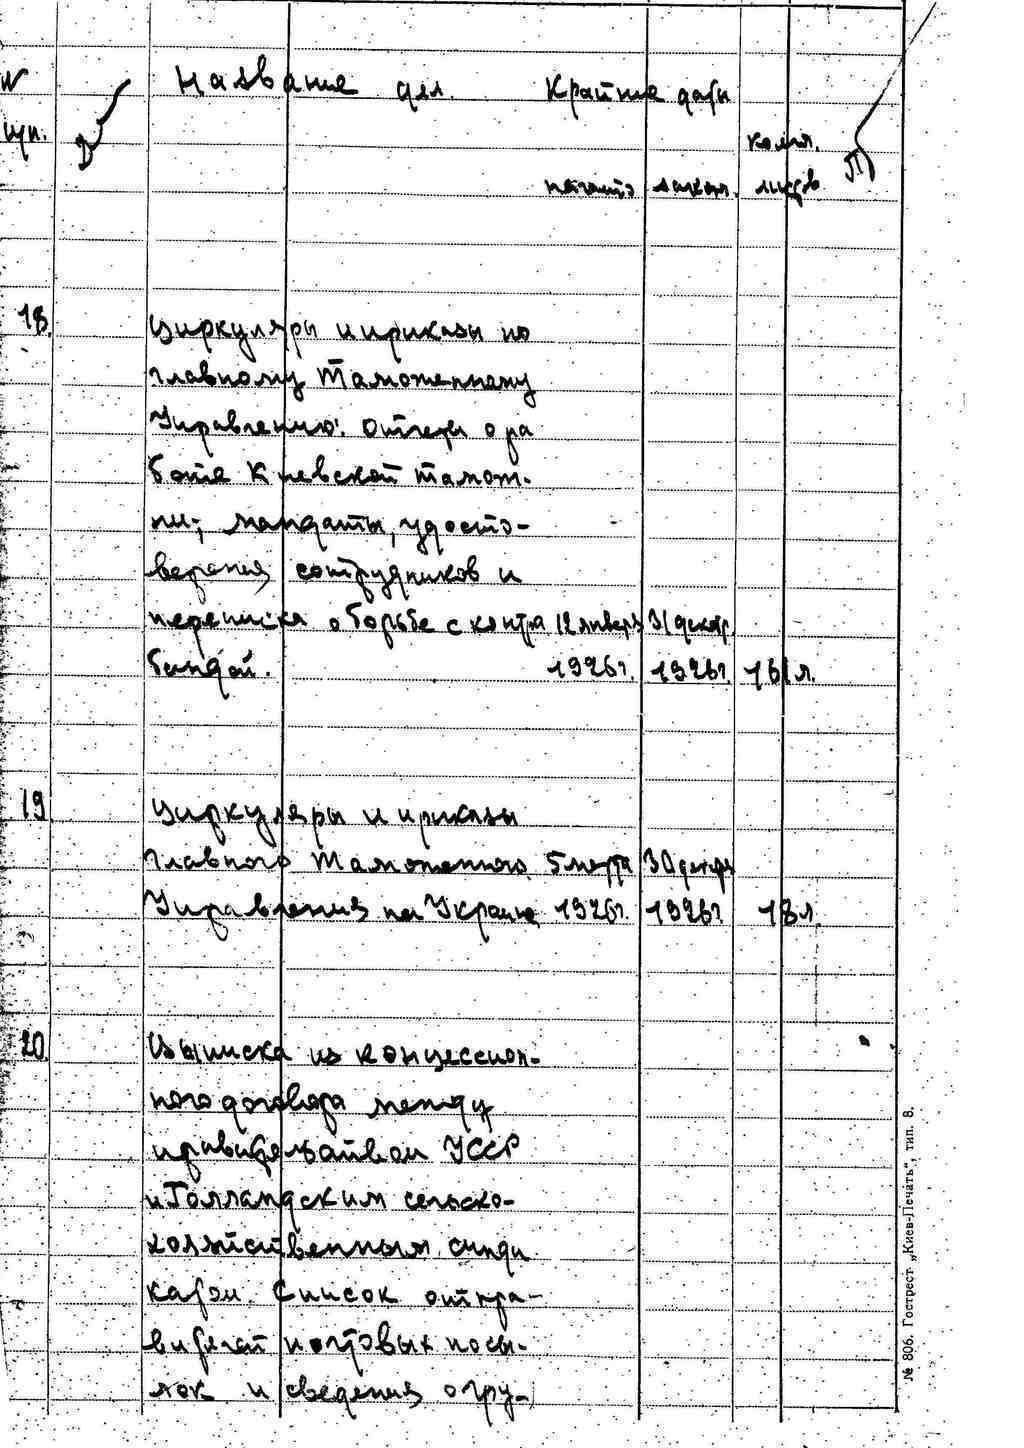 N Название дел. Крайние даты
п/п. колич.
начато законч. листов
18. Циркуляры и приказы по
главному Таможенному
Управлению. Отчеты о ра
боте Киевской тамож-
ни; мандаты, удосто-
верения сотрудников и
переписка о борьбе с контра 12 января 31 декабр.
бандой. 1926 г. 1926 г. 161 л.
19 Циркуляры и приказы
Главного Таможенного 5 марта 30 декабря
Управления на Украине 1926 г. 1926 г. 18 л
20. Выписка из концессион-
ного договора между
правительством УССР
и Голландским сельско-
хозяйственным синди
катом. Список отпра-
вителей почтовых посы-
лок и сведения о гру-
№ 806. Гострест „Киев-Печать“, тип. 8.